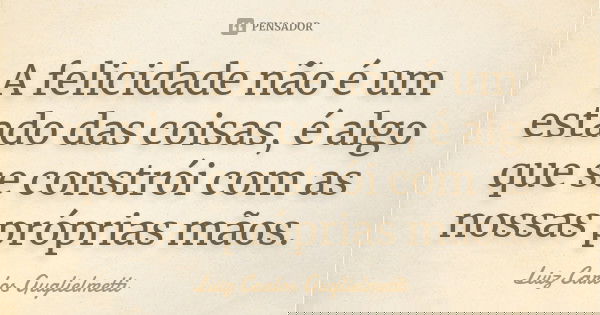 PENSADOR
A felicidade não é um
estado das coisas, é algo
que se constrói com as
nossas próprias mãos.
Luiz Carlos Guglielmetti